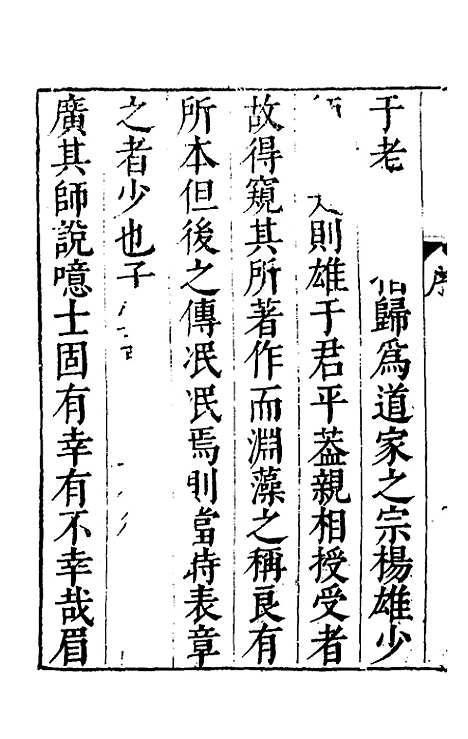 序
于老 指歸為道家之宗楊雄少
則雄于君平葢親相授受者
故得窺其所著作而淵藻之稱良有
所本但後之傳泯泯焉則當時表章
之者少也子
廣其師說噫士固有幸有不幸哉眉